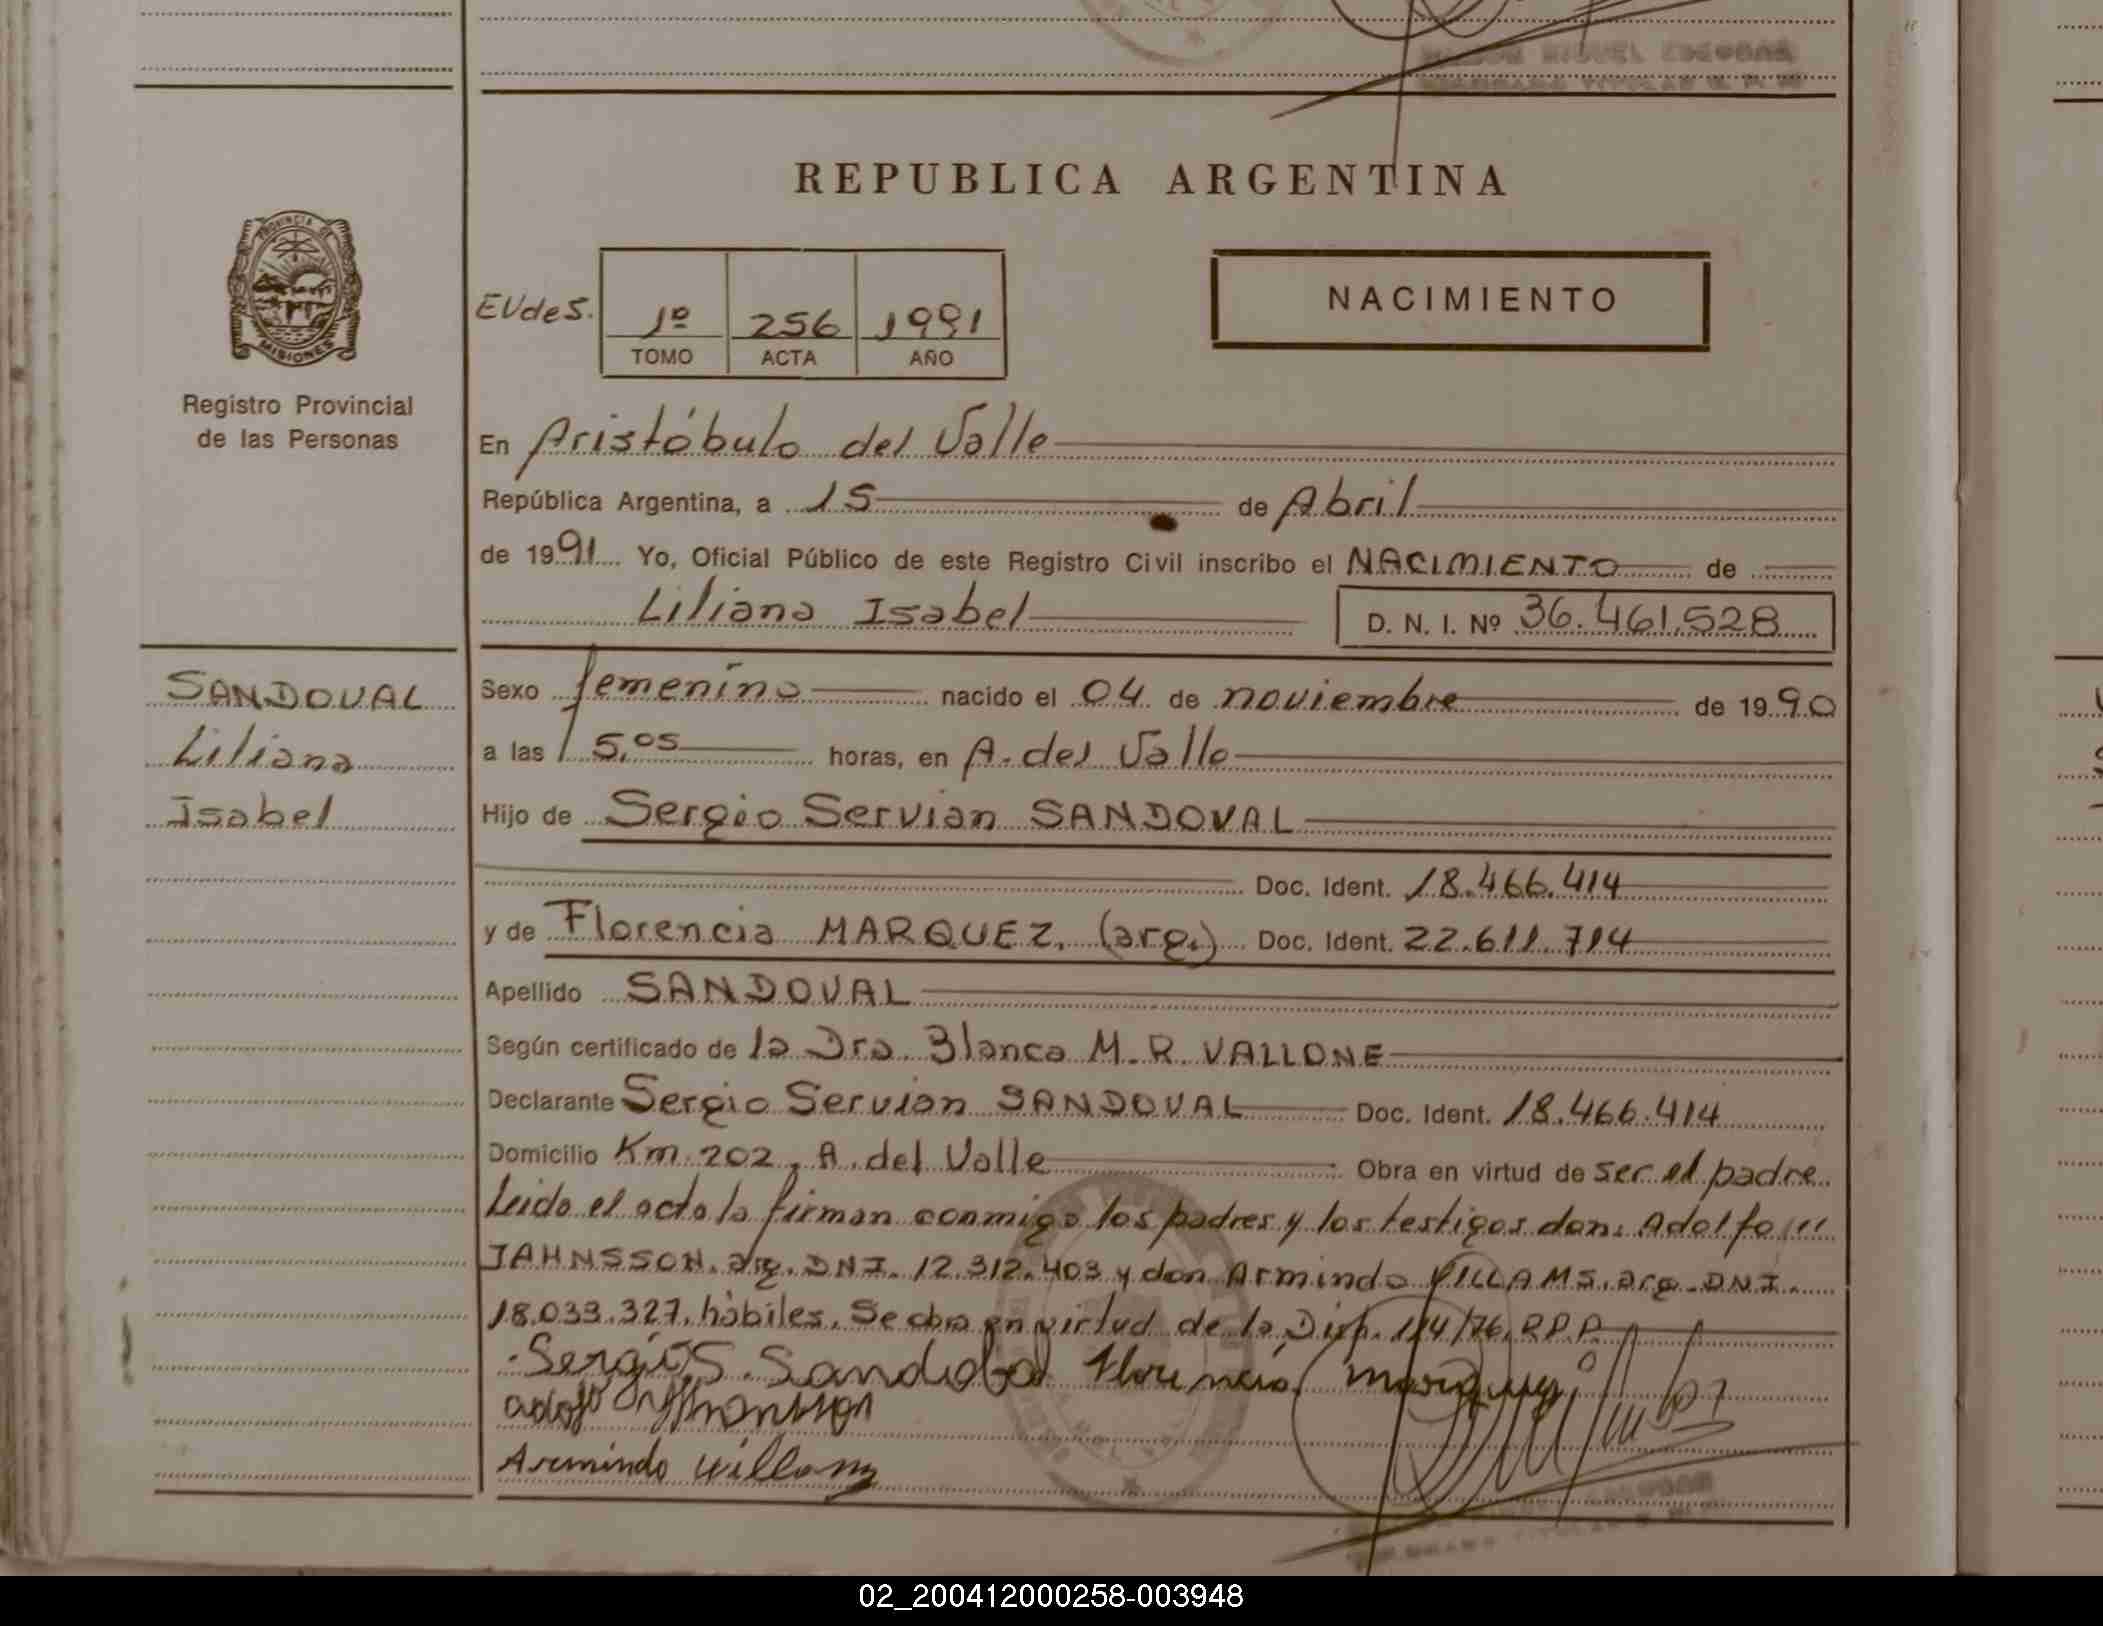 REPUBLICA ARGENTINA
PROVINCIA DE
MISIONES
Registro Provincial
de las Personas
EVdes.
1º 256 1991
TOMO ACTA AÑO
NACIMIENTO
En Aristóbulo del Valle
República Argentina, a 15 de Abril
de 1991 Yo, Oficial Público de este Registro Civil inscribo el NACIMIENTO de
Liliana Isabel D. N. I. Nº 36.461.528
SANDOVAL
Liliana
Isabel
Sexo femenino nacido el 04 de noviembre de 1990
a las 15,05 horas, en A. del Valle
Hijo de Sergio Servian SANDOVAL
Doc. Ident. 18.466.414
y de Florencia MARQUEZ, (arg.) Doc. Ident. 22.611.714
Apellido SANDOVAL
Según certificado de la Dra. Blanca M. R. VALLONE
Declarante Sergio Servian SANDOVAL Doc. Ident. 18.466.414
Domicilio Km. 202, A. del Valle Obra en virtud de ser el padre.
Leido el acta la firman conmigo los padres y los testigos don: Adolfo
JAHNSSON. arg. DNI. 12.312.403 y don Armindo VILLAMS. arg. DNI.
18.033.327. hábiles. Se obra en virtud de la Disp. 114/76. R.P.P.
Sergio S. Sandobal Florencia Marquez
Armindo Willams
02_200412000258-003948